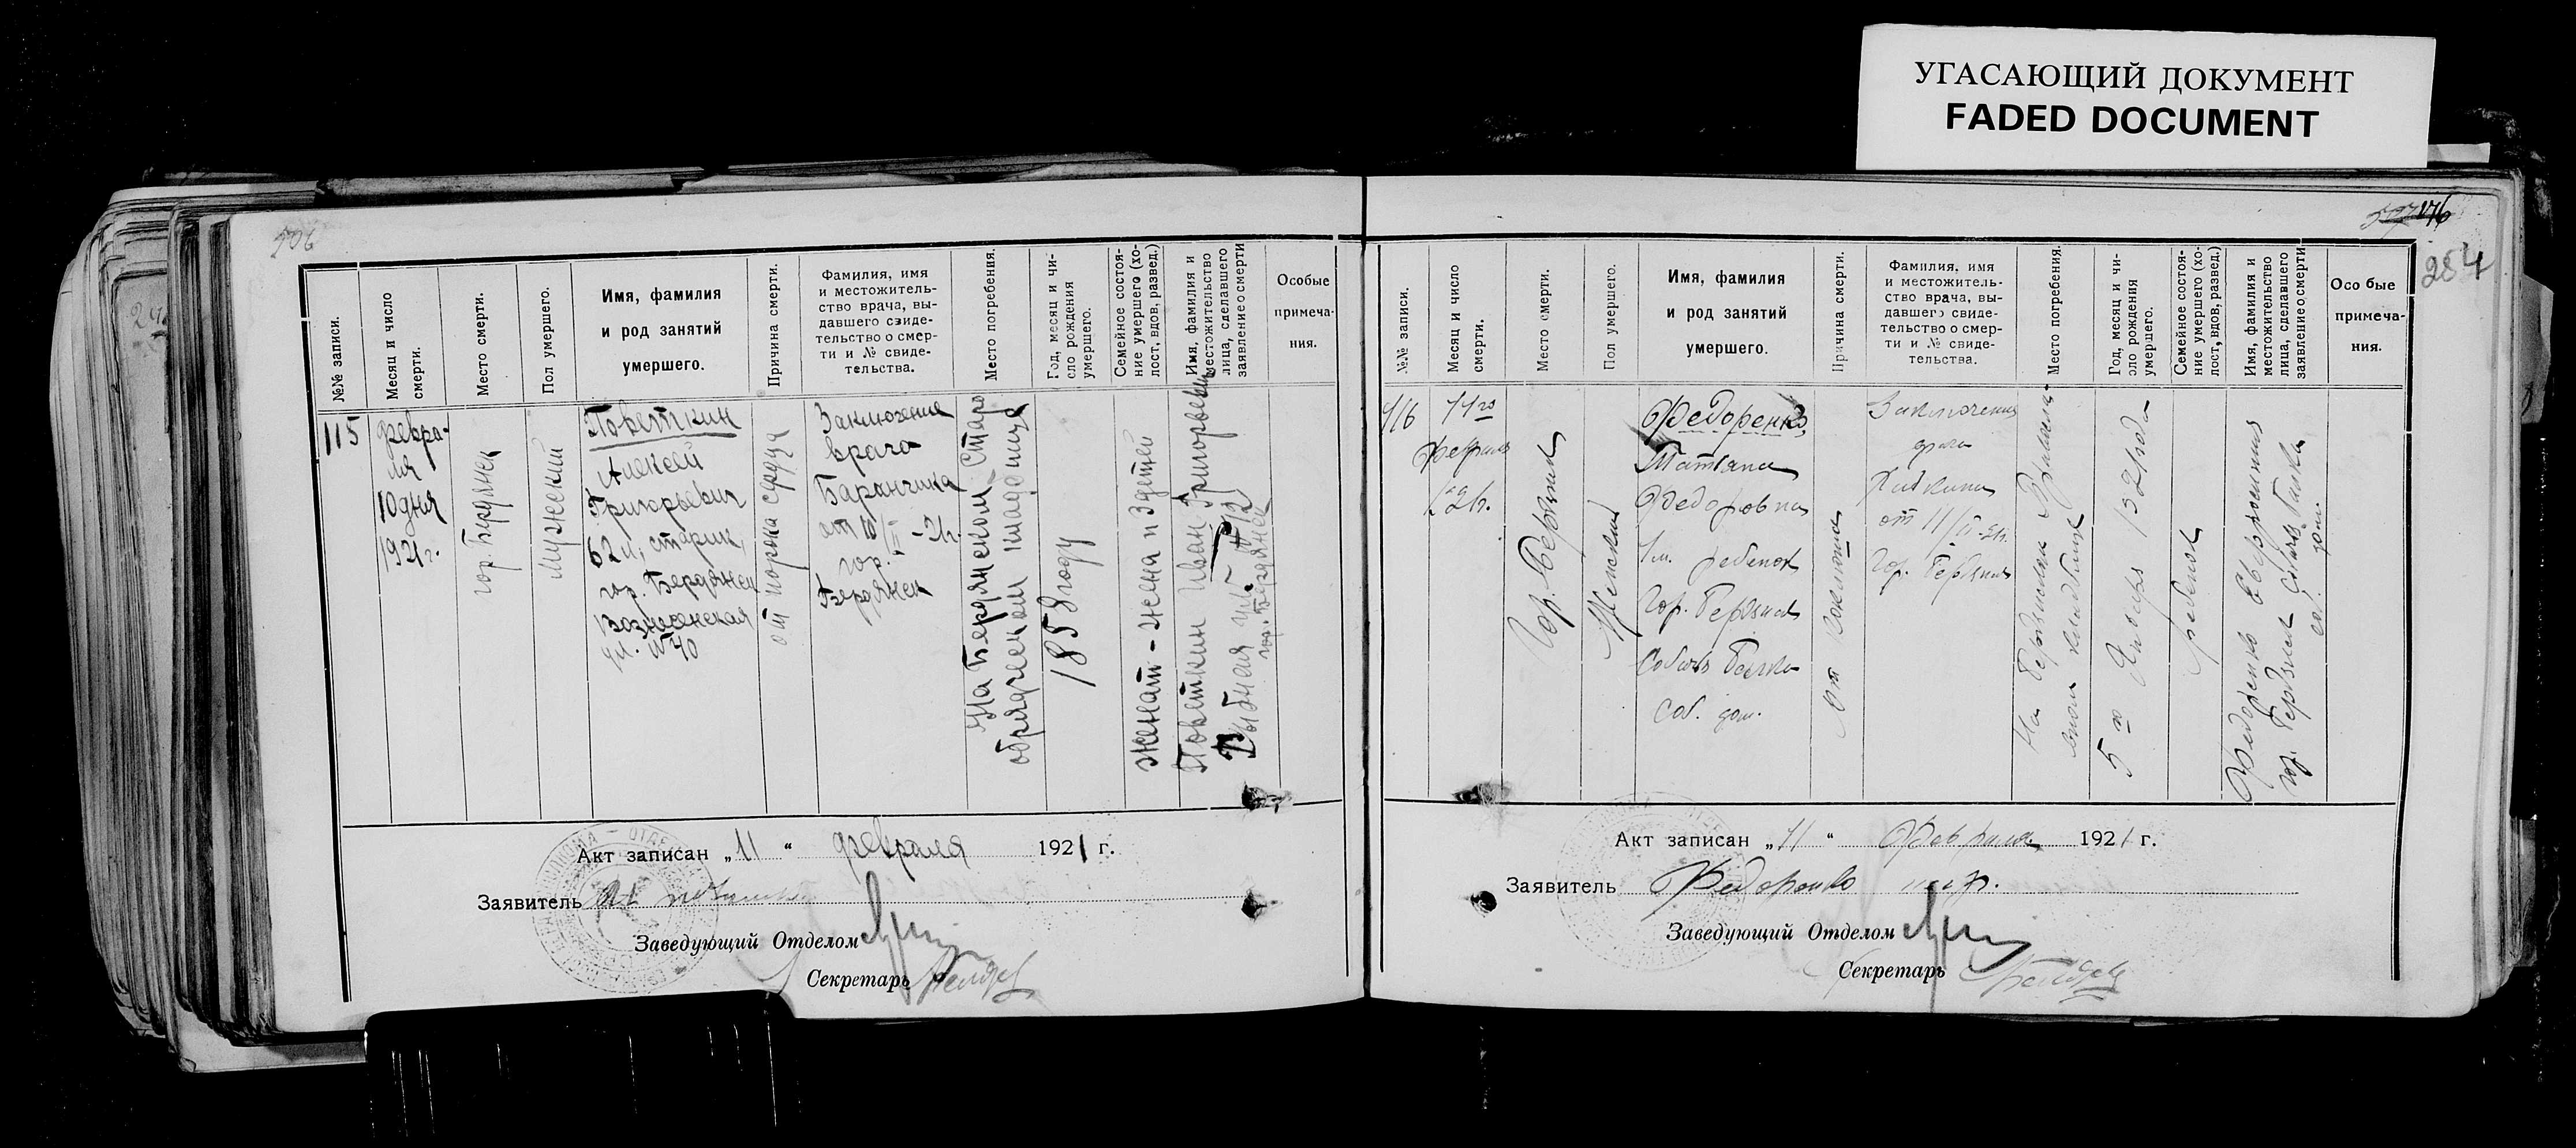 УГАСАЮЩИЙ ДОКУМЕНТ
FADED DOCUMENT
506
№№ записи.
Месяц и число
смерти.
Место смерти.
Пол умершего.
Имя, фамилия
и род занятий
умершего.
Причина смерти.
Фамилия, имя
и местожитель-
ство врача, вы-
давшего свиде-
тельство о смер-
ти и № свиде-
тельства.
Место погребения.
Год, месяц и чи-
сло рождения
умершего.
Семейное состоя-
ние умершего (хо-
лост, вдов, развед.)
Имя, фамилия и
местожительство
лица, сделавшего
заявление о смерти
Особые
примеча-
ния.
115
февра-
ля
10 дня
1921 г.
гор. Бердянск
Мужеский
Поветкин
Алексей
Григорьевич
62 л., старик,
гор. Бердянск
Вознесенская
ул. №40
от порока сердца
Заключение
врача
Баранчика
от 10/II-21г.
гор.
Бердянск
На Бердянском Старо
обрядческом кладбище
1858 году
женат - жена и 3 детей
Поветкин Иван Григорьевич
гор. Бердянск
Акт записан „11“ февраля 1921 г.
Заявитель
Заведующий Отделом
Секретарь
176
284
№№ записи.
Месяц и число
смерти.
Место смерти.
Пол умершего.
Имя, фамилия
и род занятий
умершего.
Причина смерти.
Фамилия, имя
и местожитель-
ство врача, вы-
давшего свиде-
тельство о смер-
ти и № свиде-
тельства.
Место погребения.
Год, месяц и чи-
сло рождения
умершего.
Семейное состоя-
ние умершего (хо-
лост, вдов, развед.)
Имя, фамилия и
местожительство
лица, сделавшего
заявление о смерти
Осо бые
примеча-
ния.
116
11го
февраля
Гор. Бердянск
Женский
Федоренко,
Татьяна
Федоровна
1 м. ребенок
Гор. Бердянск
Собачья Балка
соб. дом.
От коклюша
Заключение
врача
от 11/II-21г.
Гор. Бердянск
На Бердянском
кладбище
5го Января 1921 года
ребенок
Федоренко
гор. Бердянск Собачья Балка
соб. дом.
Акт записан „11“ Февраля 1921 г.
Заявитель Федоренко
Заведующий Отделом
Секретарь